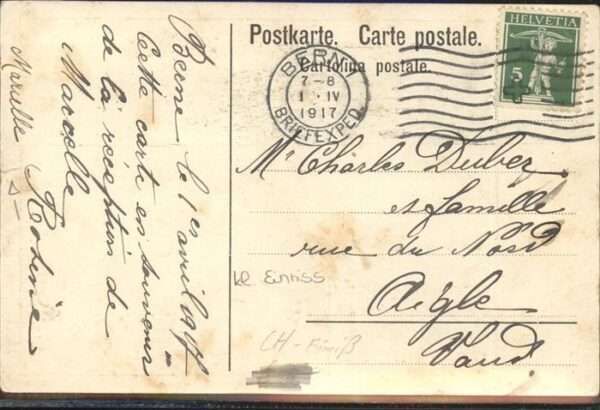 Postkarte. Carte postale.
Cartolina postale.
HELVETIA
5
BERN
7-8
1 · IV
1917
BRIEFEXPED.
Mr Charles Dubez
et famille
rue du Nord
Aigle
Vaud.
Berne le 1er avril 1917
Cette carte en souvenir
de la réception de
Marcelle
Marcelle
CH -